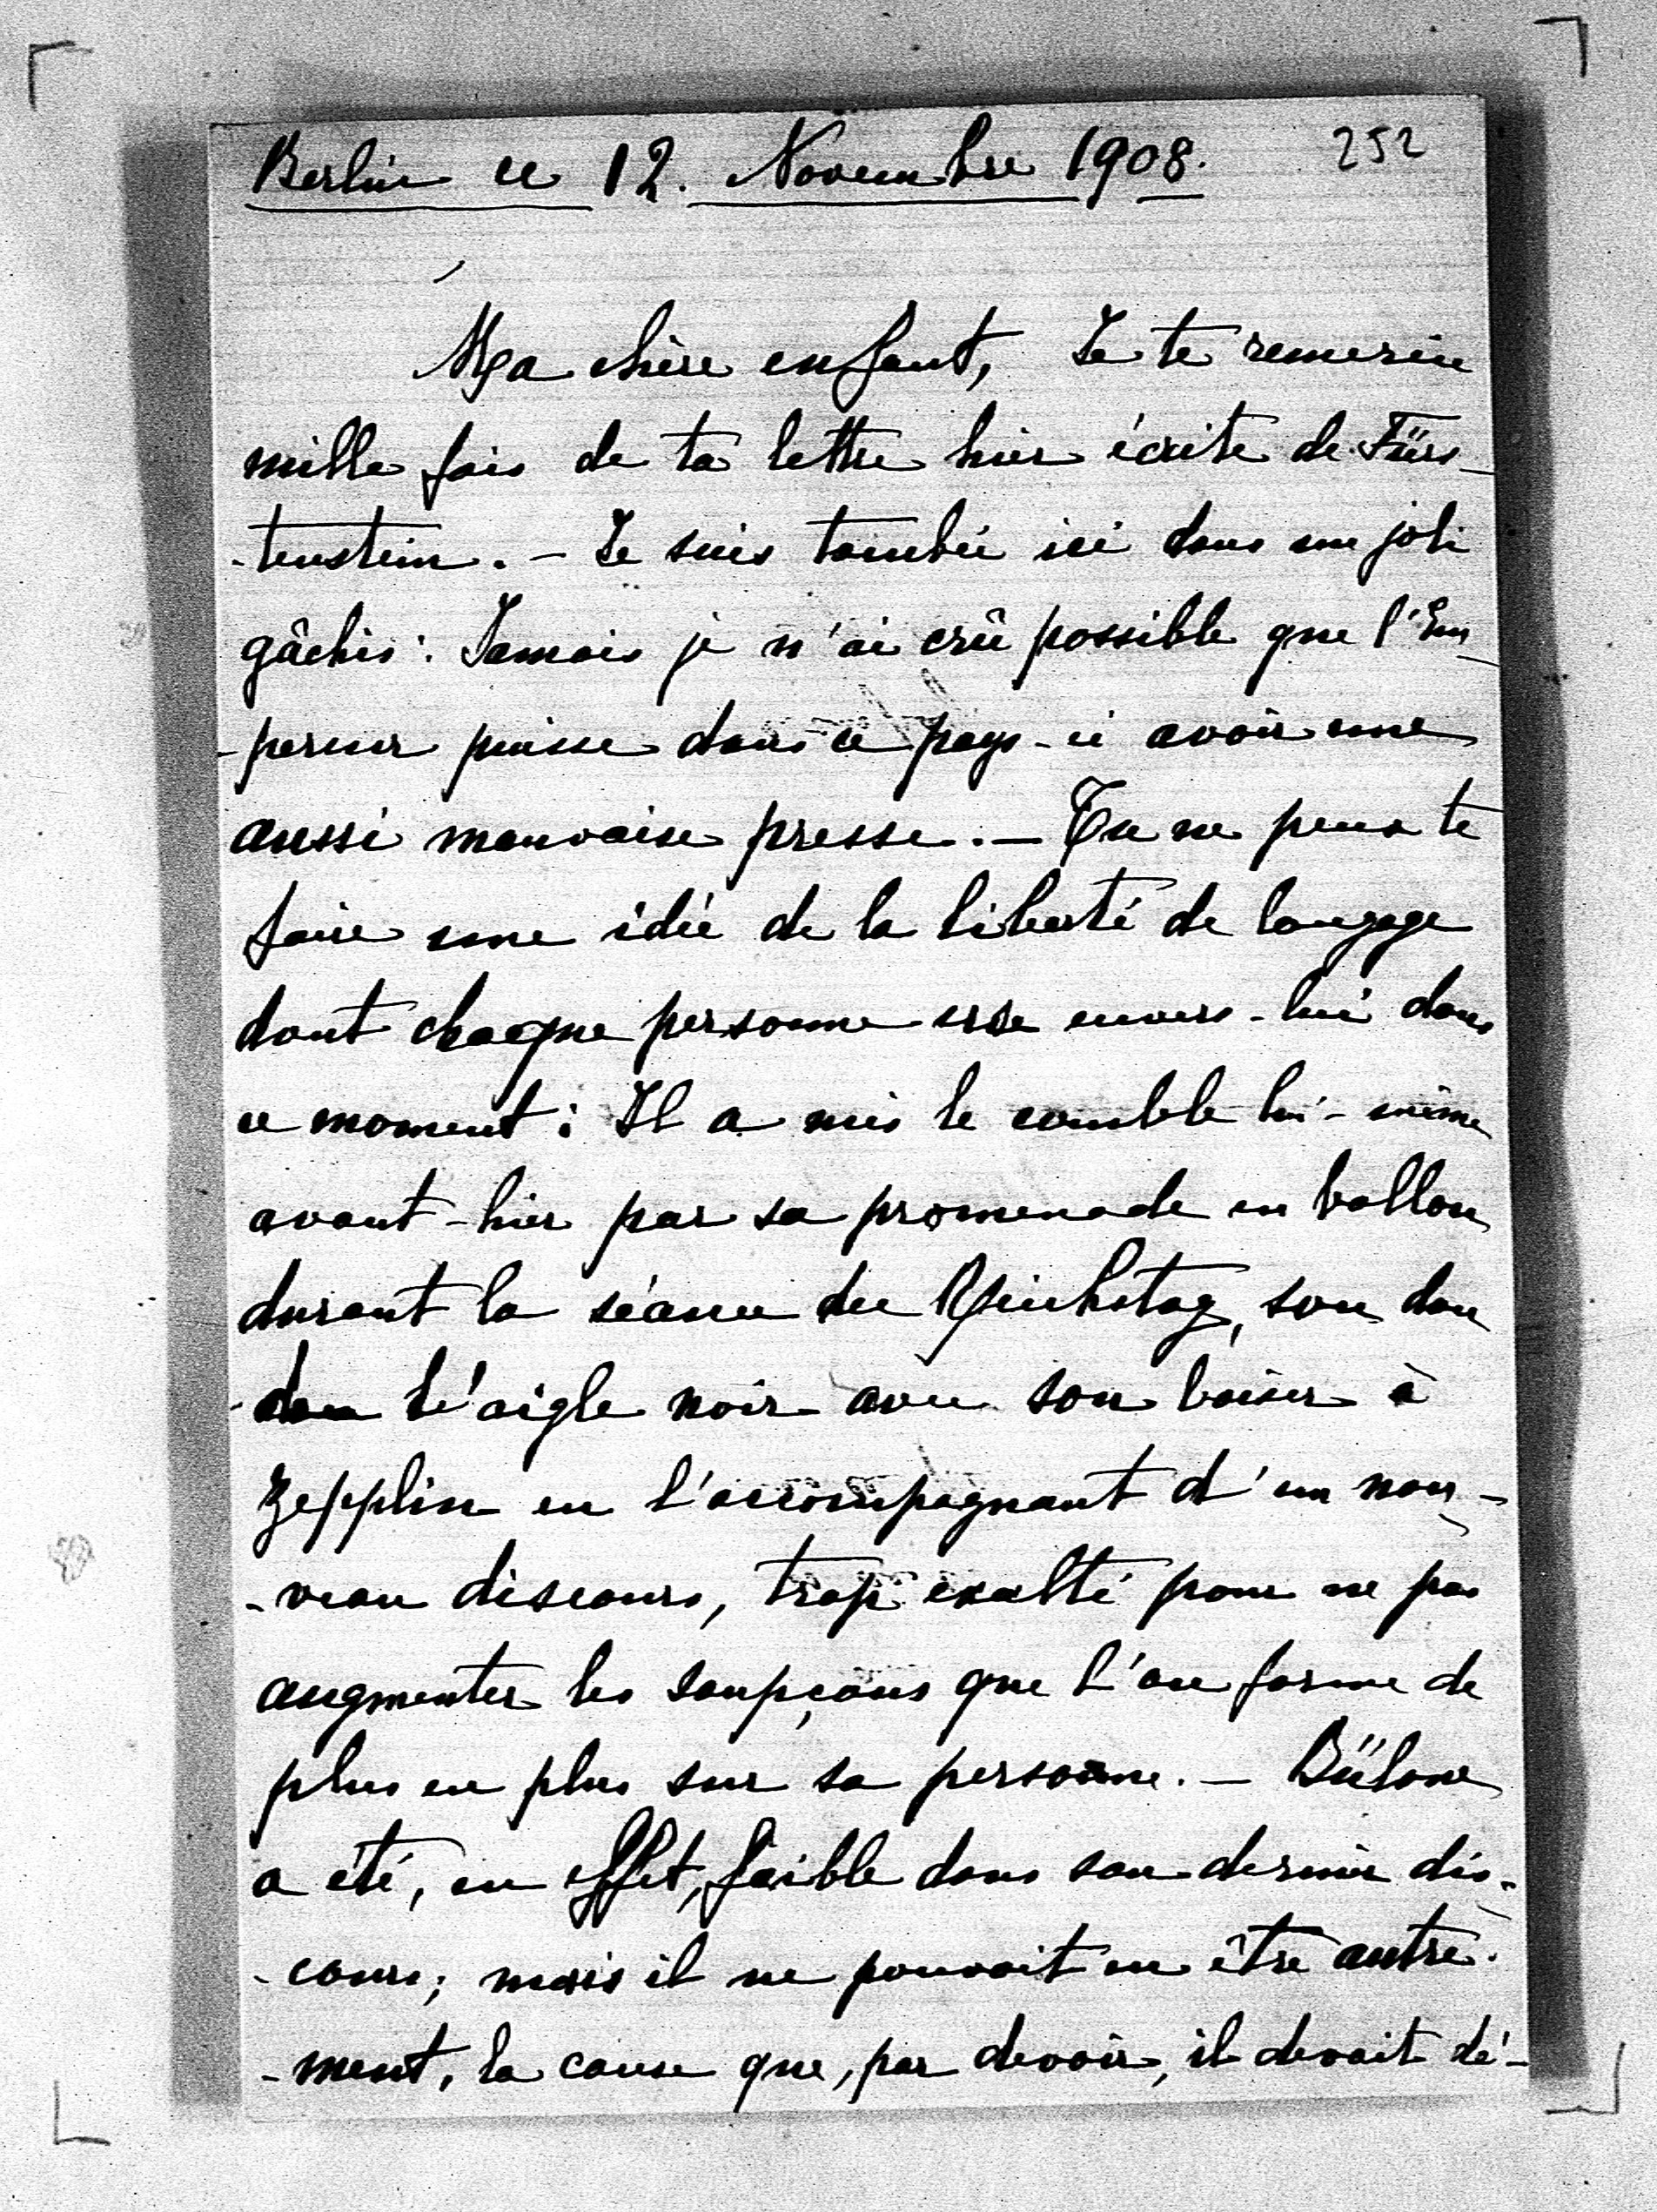 Berlin ce 12. Novembre 1908.
252
Ma chère enfant, Je te remercie
mille fois de ta lettre hier écrite de Fürs-
-tenstein. – Je suis tombée ici dans un joli
gâchis: Jamais je n'ai crû possible que l'Em-
-pereur puisse dans ce pays-ci avoir une
aussi mauvaise presse. – Tu ne peux te
faire une idée de la liberté de langage
dont chaque personne use envers-lui dans
ce moment: Il a mis le comble lui-même
avant-hier par sa promenade en ballon
durant la séance du Reichstag, son don
de l'aigle noir avec son baiser à
Zepplin en l'accompagnant d'un nou-
-veau discours, trop exalté pour ne pas
augmenter les soupçons que l'on forme de
plus en plus sur sa personne. – Bülow
a été, en effet, faible dans son dernier dis-
-cours; mais il ne pouvait en être autre-
-ment, la cause que, par devoir, il devait dé-